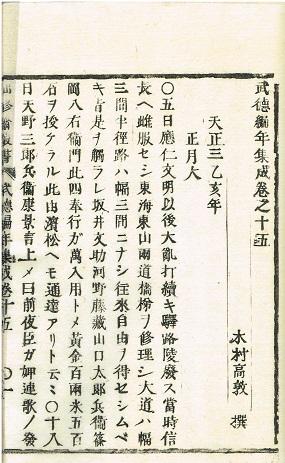 武德編年集成卷之十五
木村高敦 撰
天正三乙亥年
正月大
〇五日應仁文明以後大亂打續キ驛路陵廢ス當時信
長ヘ雌服セシ東海東山兩道橋梁ヲ修理シ大道ハ幅
三間半徑路ハ幅三間ニナシ往來自由ヲ得セシムベ
キ旨是ヲ觸ラレ坂井文助河野藤藏山口太郎兵衞篠
岡八右衞門此四奉行ガ萬入用トメ黃金百兩米五百
石ヲ授ケラル此由濱松ヘモ通達アリト云ミ〇十八
日天野三郎兵衞康景言上メ曰前夜臣ガ岬連歌ノ發
武德編年集成卷十五 〇一